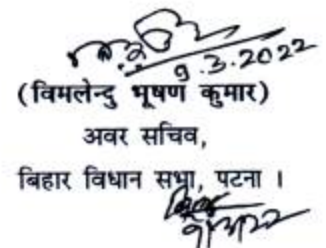 9.3.2022
(विमलेन्दु भूषण कुमार)
अवर सचिव,
बिहार विधान सभा, पटना ।